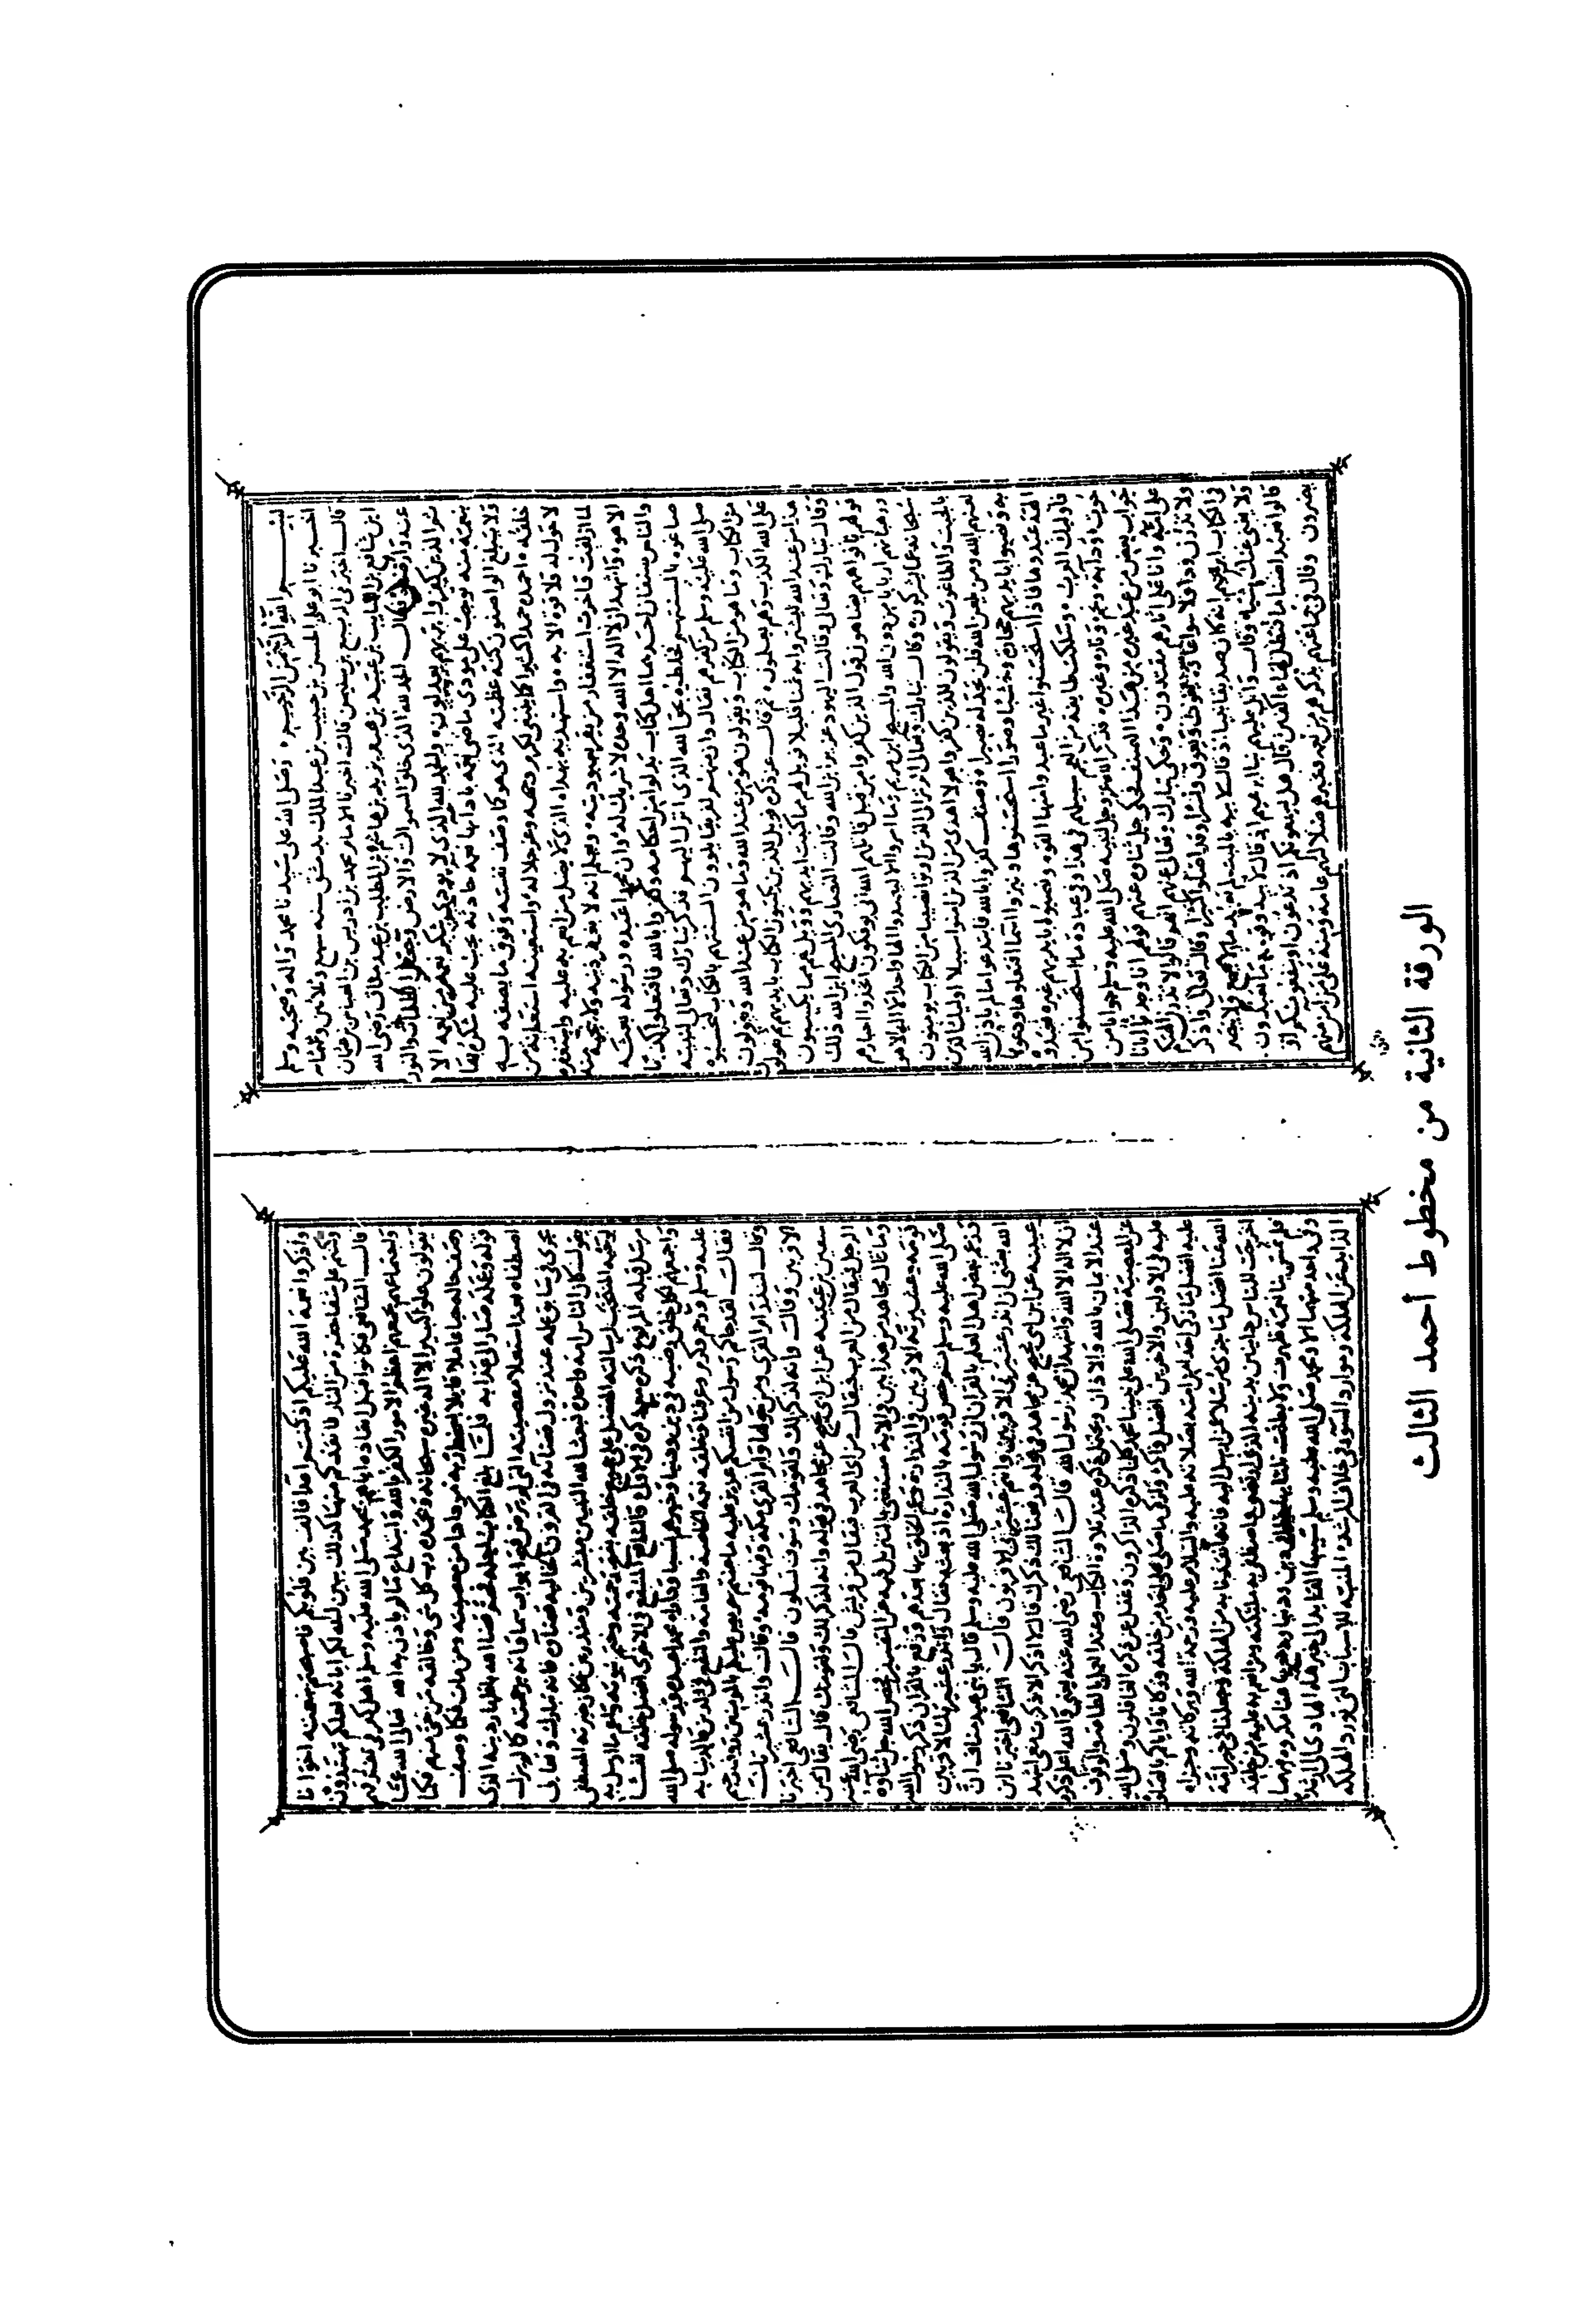 بسم الله الرحمن الرحيم وصلى الله على سيدنا محمد وآله وصحبه وسلم
اخبرنا ابو علي الحسن بن حبيب بن عبد الملك بدمشق سنة سبع وثلاثين وثلثمائة
قال اخبرني الربيع بن سليمن قال اخبرنا الامام محمد بن ادريس بن العباس بن عثمان
ابن شافع بن السايب بن عبيد بن عبد يزيد بن هاشم بن المطلب بن عبد مناف رضي الله
عنه وارضاه قال الحمد لله الذي خلق السموات والارض وجعل الظلمات والنور
ثم الذين كفروا بربهم يعدلون والحمد لله الذي لا يودى شكر نعمة من نعمه الا
بنعمة منه توجب على مودي ماضي نعمه بادائها نعمة حادثة يجب عليه شكره بها
ولا يبلغ الواصفون كنه عظمته الذي هو كما وصف نفسه وفوق ما يصفه به
خلقه احمده حمدا كما ينبغي لكرم وجهه وعز جلاله واستعينه استعانة من
لا حول له ولا قوة الا به واستهديه بهداه الذي لا يضل من انعم به عليه واستغفره
لما ازلفت واخرت استغفار من يقر بعبوديته ويعلم انه لا يغفر ذنبه ولا ينجيه منه
الا هو واشهد ان لا اله الا الله وحده لا شريك له وان محمدا عبده ورسوله بعثه
والناس صنفان احدهما اهل كتاب بدلوا من احكامه وكفروا بالله فافتعلوا كذبا
صاغوه بالسنتهم فخلطوه بحق الله الذي انزل اليهم فذكر تبارك وتعالى لنبيه
صلى الله عليه وسلم من كفرهم فقال وان منهم لفريقا يلوون السنتهم بالكتاب لتحسبوه
من الكتاب وما هو من الكتاب ويقولون هو من عند الله وما هو من عند الله ويقولون
على الله الكذب وهم يعلمون ثم قال عز ذكره فويل للذين يكتبون الكتاب بايديهم ثم يقولون
هذا من عند الله ليشتروا به ثمنا قليلا فويل لهم مما كتبت ايديهم وويل لهم مما يكسبون
وقال تبارك وتعالى وقالت اليهود عزير ابن الله وقالت النصارى المسيح ابن الله ذلك
قولهم بافواههم يضاهون قول الذين كفروا من قبل قاتلهم الله انى يوفكون اتخذوا احبارهم
ورهبانهم اربابا من دون الله والمسيح ابن مريم وما امروا الا ليعبدوا الها واحدا لا اله الا هو
سبحانه عما يشركون وقال تبارك وتعالى الم تر الى الذين اوتوا نصيبا من الكتاب يومنون
بالجبت والطاغوت ويقولون للذين كفروا هولاء اهدى من الذين امنوا سبيلا اوليك الذين
لعنهم الله ومن يلعن الله فلن تجد له نصيرا وصنف كفروا بالله فابتدعوا ما لم ياذن الله
به ونصبوا بايديهم حجارة وخشبا وصورا استحسنوها ونبزوا اسما افتعلوها ودعوها
الهة عبدوها فاذا استحسنوا غير ما عبدوا منها القوه ونصبوا بايديهم غيره فعبدوه
فاوليك العرب وسلكت طايفة من العجم سبيلهم في هذا وفي عبادة ما استحسنوا من
حوت ودابة ونجم ونار وغيره فذكر الله عز وجل لنبيه صلى الله عليه وسلم جوابا من
جواب بعض من عبد غيره من هذا الصنف فحكى جل ثناوه عنهم قولهم انا وجدنا اباءنا
على امة وانا على اثارهم مقتدون وحكى تبارك وتعالى عنهم انهم قالوا لا تذرن الهتكم
ولا تذرن ودا ولا سواعا ولا يغوث ويعوق ونسرا وقد اضلوا كثيرا وقال تعالى واذكر
في الكتاب ابرهيم انه كان صديقا نبيا اذ قال لابيه يا ابت لم تعبد ما لا يسمع ولا يبصر
ولا يغني عنك شيئا وقال واتل عليهم نبا ابرهيم اذ قال لابيه وقومه ما تعبدون
قالوا نعبد اصناما فنظل لها عاكفين قال هل يسمعونكم اذ تدعون او ينفعونكم او
يضرون وقال في جماعتهم يذكرهم من نعمه ويخبرهم ضلالتهم عامة ومنه على من امن منهم
واذكروا نعمة الله عليكم اذ كنتم اعداء فالف بين قلوبكم فاصبحتم بنعمته اخوانا
وكنتم على شفا حفرة من النار فانقذكم منها كذلك يبين الله لكم اياته لعلكم تهتدون
قال الشافعي فكانوا قبل انقاذه اياهم بمحمد صلى الله عليه وسلم اهل كفر في تفرقهم
واجتماعهم يجمعهم اعظم الامور الكفر بالله وابتداع ما لم ياذن به الله تعالى الله عما
يقولون علوا كبيرا لا اله غيره سبحانه وبحمده رب كل شي وخالقه من حي منهم فكما
وصف حاله حيا عاملا قايلا بسخط ربه مزدادا من معصيته ومن مات فكما وصف
قوله وعمله صار الى عذابه فلما بلغ الكتاب اجله فحق قضاء الله باظهار دينه الذي
اصطفاه بعد استعلا معصيته التي لم يرض فتح ابواب سماواته برحمته كما لم يزل
يجري في سابق علمه عند نزول قضائه في القرون الخالية قضاوه فانه تبارك وتعالى
يقول كان الناس امة واحدة فبعث الله النبيين مبشرين ومنذرين فكان خيرته المصطفى
لوحيه المنتخب لرسالته المفضل على جميع خلقه بفتح رحمته وختم نبوته واعم ما ارسل به
مرسل قبله المرفوع ذكره مع ذكره في الاولى والشافع المشفع في الاخرى افضل خلقه نفسا
واجمعهم لكل خلق رضيه في دين ودنيا وخيرهم نسبا ودارا محمدا عبده ورسوله صلى الله
عليه وسلم وعرفنا وخلقه نعمه الخاصة والعامة والنفع في الدين والدنيا به
فقال لقد جاكم رسول من انفسكم عزيز عليه ما عنتم حريص عليكم بالمومنين روف رحيم
وقال لتنذر ام القرى ومن حولها وام القرى مكة وفيها قومه وقال وانذر عشيرتك
الاقربين وقال وانه لذكر لك ولقومك وسوف تسلون قال الشافعي اخبرنا
سفين بن عيينة عن ابن ابي نجيح عن مجاهد في قوله وانه لذكر لك ولقومك قال يقال ممن
الرجل فيقال من العرب فيقال من اي العرب فيقال من قريش قال الشافعي رضي الله عنه
وما قال مجاهد من هذا بين في الاية مستغنى بالتنزيل فيه عن التفسير فخص الله جل ثناوه
قومه وعشيرته الاقربين في النذارة وعم الخلق بها بعدهم ورفع بالقران ذكر رسول الله
صلى الله عليه وسلم ثم خص قومه بالنذارة اذ بعثه فقال وانذر عشيرتك الاقربين
وزعم بعض اهل العلم بالقران ان رسول الله صلى الله عليه وسلم قال يا بني عبد مناف ان
الله بعثني ان انذر عشيرتي الاقربين وانتم عشيرتي الاقربون قال الشافعي اخبرنا ابن
عيينة عن ابن ابي نجيح عن مجاهد في قوله ورفعنا لك ذكرك قال لا اذكر الا ذكرت معي اشهد
ان لا اله الا الله واشهد ان محمدا رسول الله قال الشافعي رضي الله عنه يعني والله اعلم ذكره
عند الايمان بالله والاذان ويحتمل ذكره عند تلاوة الكتاب وعند العمل بالطاعة والوقوف
عن المعصية فصلى الله على نبينا محمد كلما ذكره الذاكرون وغفل عن ذكره الغافلون وصلى الله
عليه في الاولين والاخرين افضل واكثر وازكى ما صلى على احد من خلقه وزكانا واياكم بالصلاة
عليه افضل ما زكى احدا من امته بصلاته عليه والسلام عليه ورحمة الله وبركاته وجزاه
الله عنا افضل ما جزى مرسلا عن من ارسل اليه فانه انقذنا به من الهلكة وجعلنا في خير امة
اخرجت للناس داينين بدينه الذي ارتضى واصطفى به ملايكته ومن انعم عليه من خلقه
فلم تمس بنا نعمة ظهرت ولا بطنت نلنا بها حظا في دين ودنيا او دفع بها عنا مكروه فيهما
وفي واحد منهما الا ومحمد صلى الله عليه وسلم سببها القايد الى خيرها الهادي الى رشدها
الذايد عن الهلكة وموارد السوء في خلاف الرشد المنبه للاسباب التي تورد الهلكة
الورقة الثانية من مخطوط أحمد الثالث